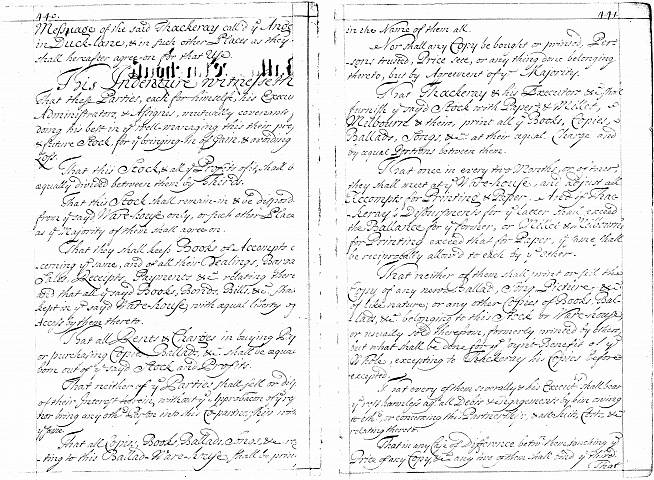 440.
Messuage of the said Thackeray call'd ye Angel
in Duck-lane, & in such other Places as they
shall hereafter agree on for that Use.
This Indenture witnesseth
That these Parties, each for himself, his Execu
Administrators & Assigns, mutually covenants,
doing his best in ye well-managing this their pre
& future Stock, for ye bringing in of Gain, & avoiding
Loss.
That this Stock & all ye Profits of it, shall b
equally divided between them by Thirds.
That this Stock shall remain in & be dispos'd
from ye sayd Ware-house only, or such other Place
as ye Majority of them shall agree on.
That they shall keep Books of Accompts c
cerning ye same, and of all their Dealings, Barga
Sales, Receipts, Payments &c. relating there
and that all ye sayd Books, Bonds, Bills, &c. shall
kept in ye sayd Ware-house, with equal liberty of
Access by them thereto.
That all Rents & Charges in buying
or purchasing Copies, Ballads, &c. shall be equal
born out of ye sayd Stock and Profits.
That neither of ye Parties shall sell or dis
of their Interest herein, without ye Approbacon of ye
nor bring any othr. Person into this Copartnership
ye same.
That all Copies, Books, Ballads, Songs, &c. re
-ting to this Ballad-Ware-house, shall be prin
441.
in the Name of them all.
Nor shall any Copy be bought or printed, Per-
sons trusted, Price set, or any thing done belonging
thereto, but by Agreement of ye Majority.
That Thackeray & his Executors &c. shall
furnish ye sayd Stock with Paper, & Millet, &
Milbourn & theirs, print all ye Books, Copies,
Ballads, Songs, &c. at their equal Charge and
by equal Portions between them.
That once in every two Months, or oftner,
they shall meet at ye Ware-house, and adjust all
Accompts for Printing & Paper. And if Thac-
keray's Disbursments for ye latter shall exceed
the Ballance for ye former, or Millet & Milbourns
for Printing exceed that for Paper, ye same shall
be reciprocally allowed to each by ye other.
That neither of them shall print or sell the
Copy of any new Ballad, Song, Picture, &c.
of like nature, or any other Copies of Books, Bal-
lads, &c. belonging to this Stock or Ware-house,
or usually sold therefrom, formerly printed by them,
but what shall be done for ye joynt-Benefit of ye
Whole, excepting to Thackeray his Copies before
excepted.
That every of them severally & his Executrs. shall bear
ye rest harmless agt. all Debts & Engagements by him owing
to othrs. or concerning this Partnership, all Suits, Costs, &c.
relating thereto.
That in any Case of Difference betwn. them touching ye
Price of any Copy, &c. any two of them shall bind ye third.
That